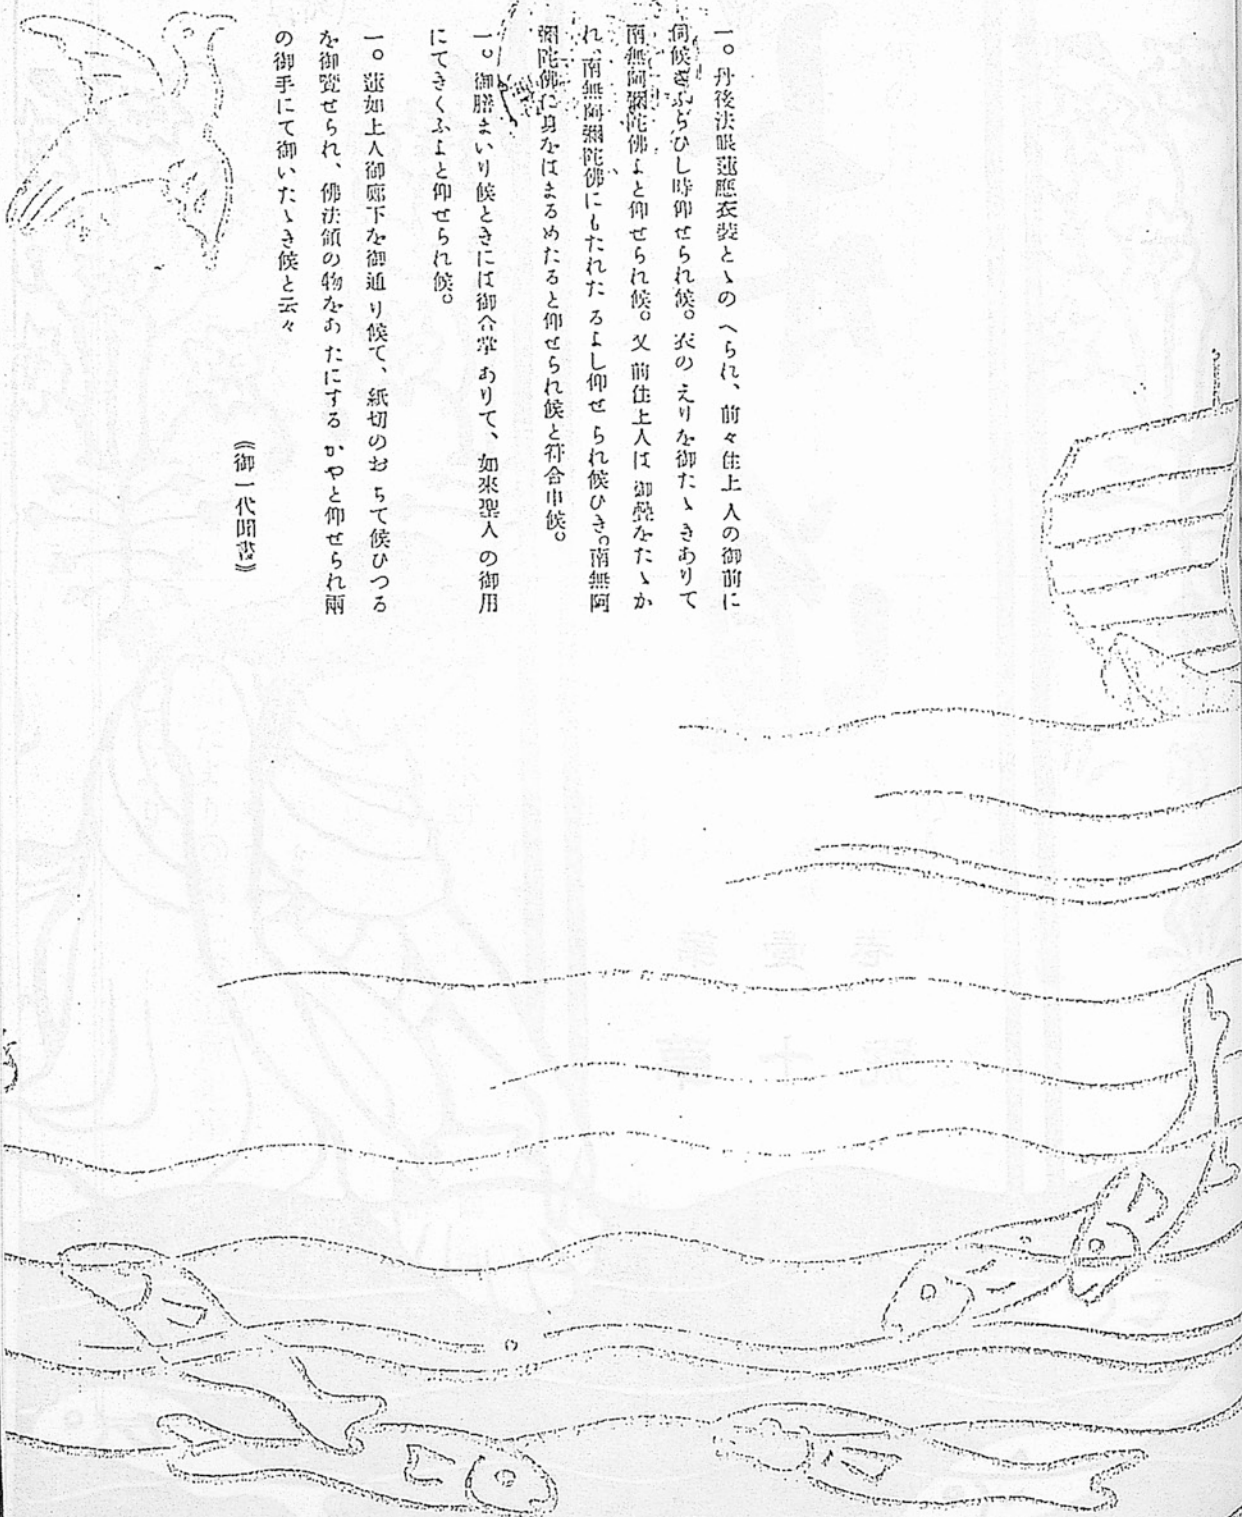 一。丹後法眼蓮應衣裝とゝのへられ、前々住上人の御前に
伺候さふらひし時仰せられ候。衣のえりを御たゝきありて
南無阿彌陀佛よと仰せられ候。又前住上人は御疊をたゝか
れ、南無阿彌陀佛にもたれたるよし仰せられ候ひき。南無阿
彌陀佛に身をはまるめたると仰せられ候と符合申候。
一。御膳まいり候ときには御合掌ありて、如來聖人の御用
にてきくふよと仰せられ候。
一。蓮如上人御廊下を御通り候て、紙切のおちて候ひつる
を御覽せられ、佛法領の物をあたにするかやと仰せられ兩
の御手にて御いたゝき候と云々
《御一代聞書》